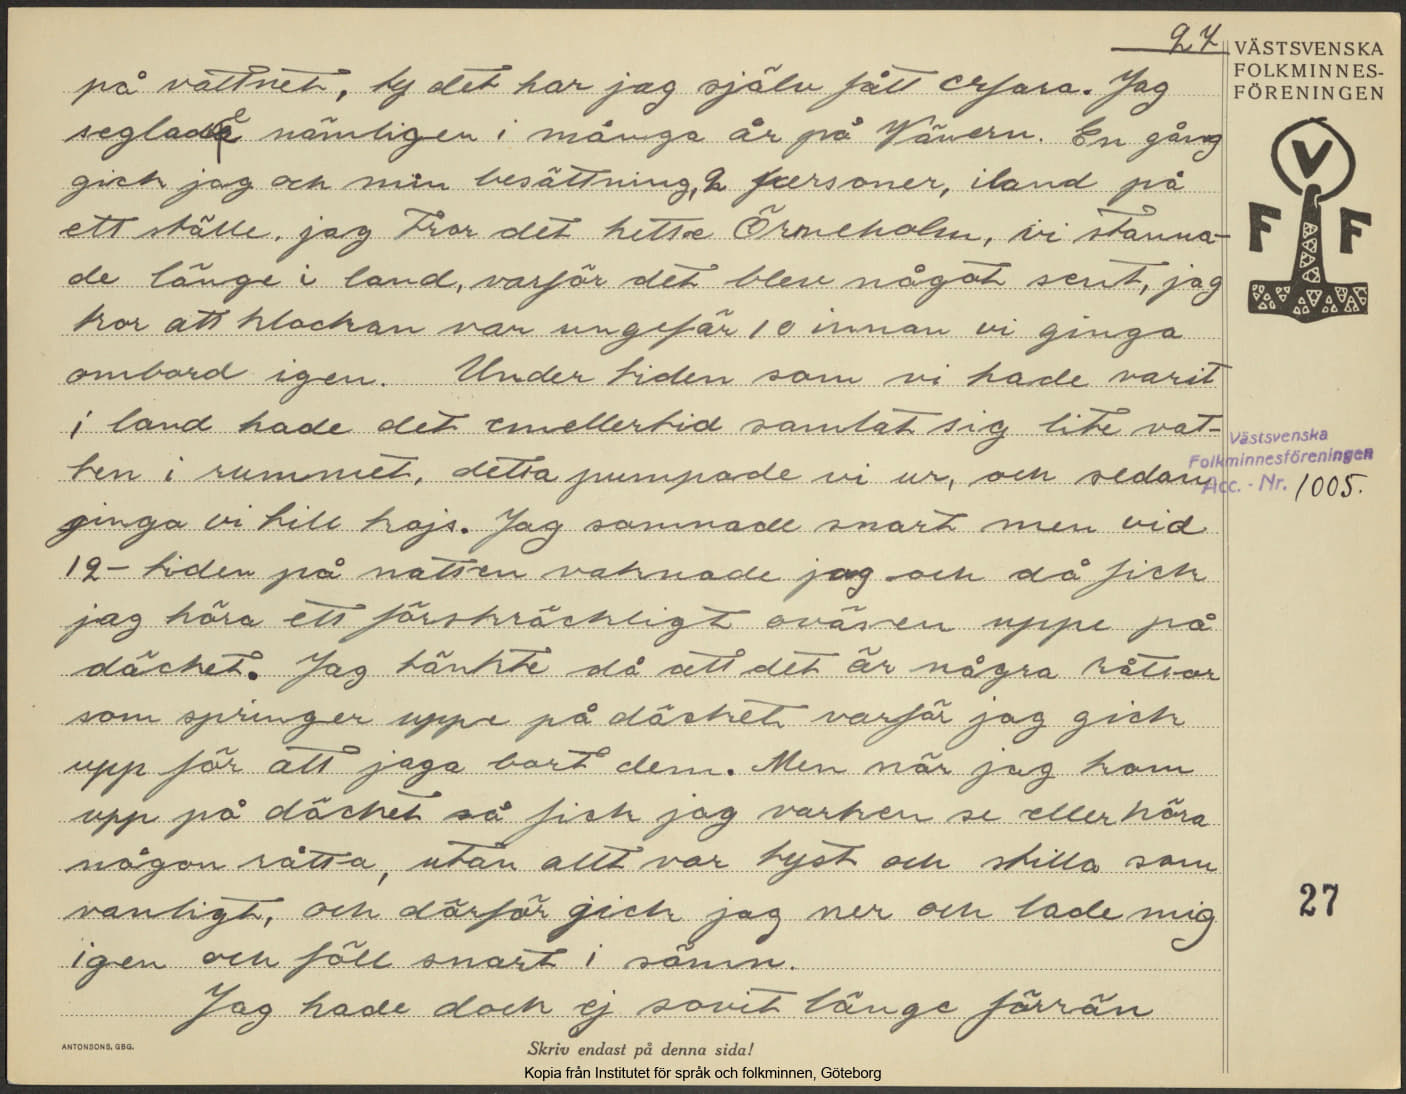 27
VÄSTSVENSKA
FOLKMINNES-
FÖRENINGEN
V
F F
på vattnet, ty det har jag själv fått erfara. Jag
seglade nämligen i många år på Vänern. En gång
gick jag och min besättning, 2 personer, iland på
ett ställe, jag tror det hette Örneholm, vi stanna-
de länge i land, varför det blev något sent, jag
tror att klockan var ungefär 10 innan vi ginga
ombord igen. Under tiden som vi hade varit
i land hade det emellertid samlat sig lite vat-
ten i rummet, detta pumpade vi ur, och sedan
ginga vi till kojs. Jag somnade snart men vid
12- tiden på natten vaknade jag och då fick
jag höra ett förskräckligt oväsen uppe på
däcket. Jag tänkte då att det är några råttor
som springer uppe på däcket varför jag gick
upp för att jaga bort dem. Men när jag kom
upp på däcket så fick jag varken se eller höra
någon råtta, utan allt var tyst och stilla som
vanligt, och därför gick jag ner och lade mig
igen och föll snart i sömn.
Jag hade dock ej sovit länge förrän
Västsvenska
Folkminnesföreningen
Acc. - Nr. 1005.
27
ANTONSONS, GBG.
Skriv endast på denna sida!
Kopia från Institutet för språk och folkminnen, Göteborg